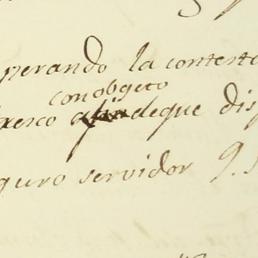 perando la contesta
con obgeto
deque dis
guro servidor q.